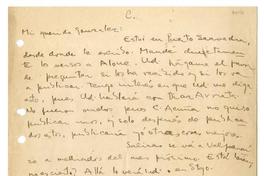 C.
Mi querido González:
Estoy en Puerto Saavedra,
desde donde le escribo. Mandé directamen-
te los versos a Alone. Ud. hágame el favor
de preguntar si los ha recibido y si los va
a publicar. Tengo interés en que Ud. me diga
esto, pues Ud. hablará con Díaz Arrieta,
No quiero mandar, pues C. Acuña no quiso
publicar unos, y solo después de publica-
dos estos, publicaría yo otros con mejor
se va a Valparaí-
so a mediados del mes próximo. Está bien,
no es cierto? Allá lo veré o en Stgo.